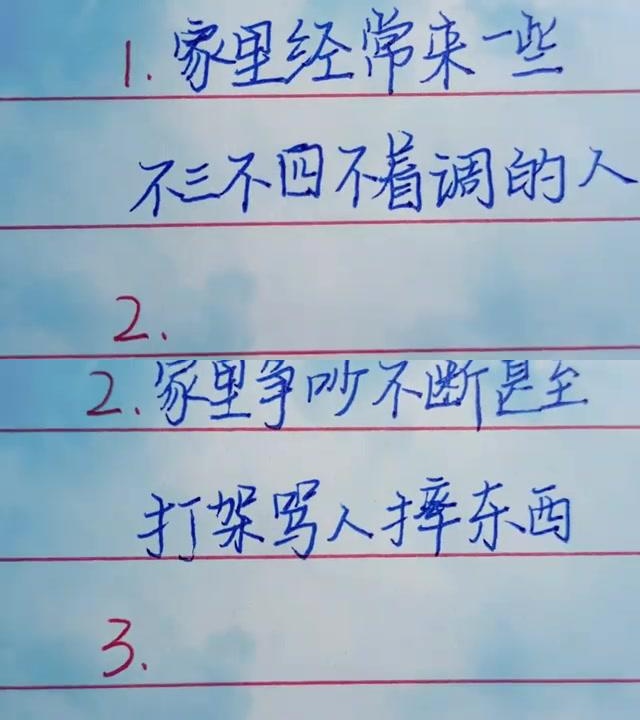 1. 家里经常来一些
不三不四不着调的人
2.
2. 家里争吵不断甚至
打架骂人摔东西
3.